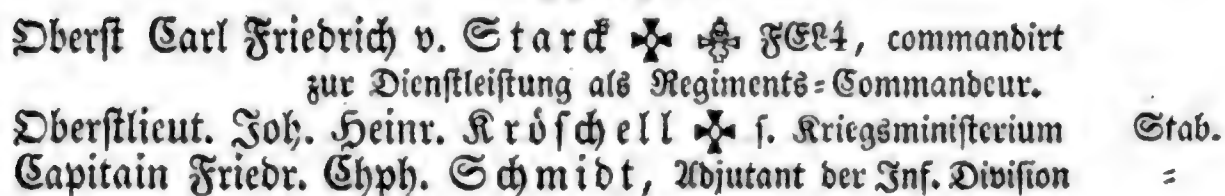 Oberst Carl Friedrich v. Starck ✠ FEL4, commandirt
zur Dienstleistung als Regiments=Commandeur.
Oberstlieut. Joh. Heinr. Kröschell ✠ s. Kriegsministerium Stab.
Capitain Friedr. Chph. Schmidt, Adjutant der Inf. Division =